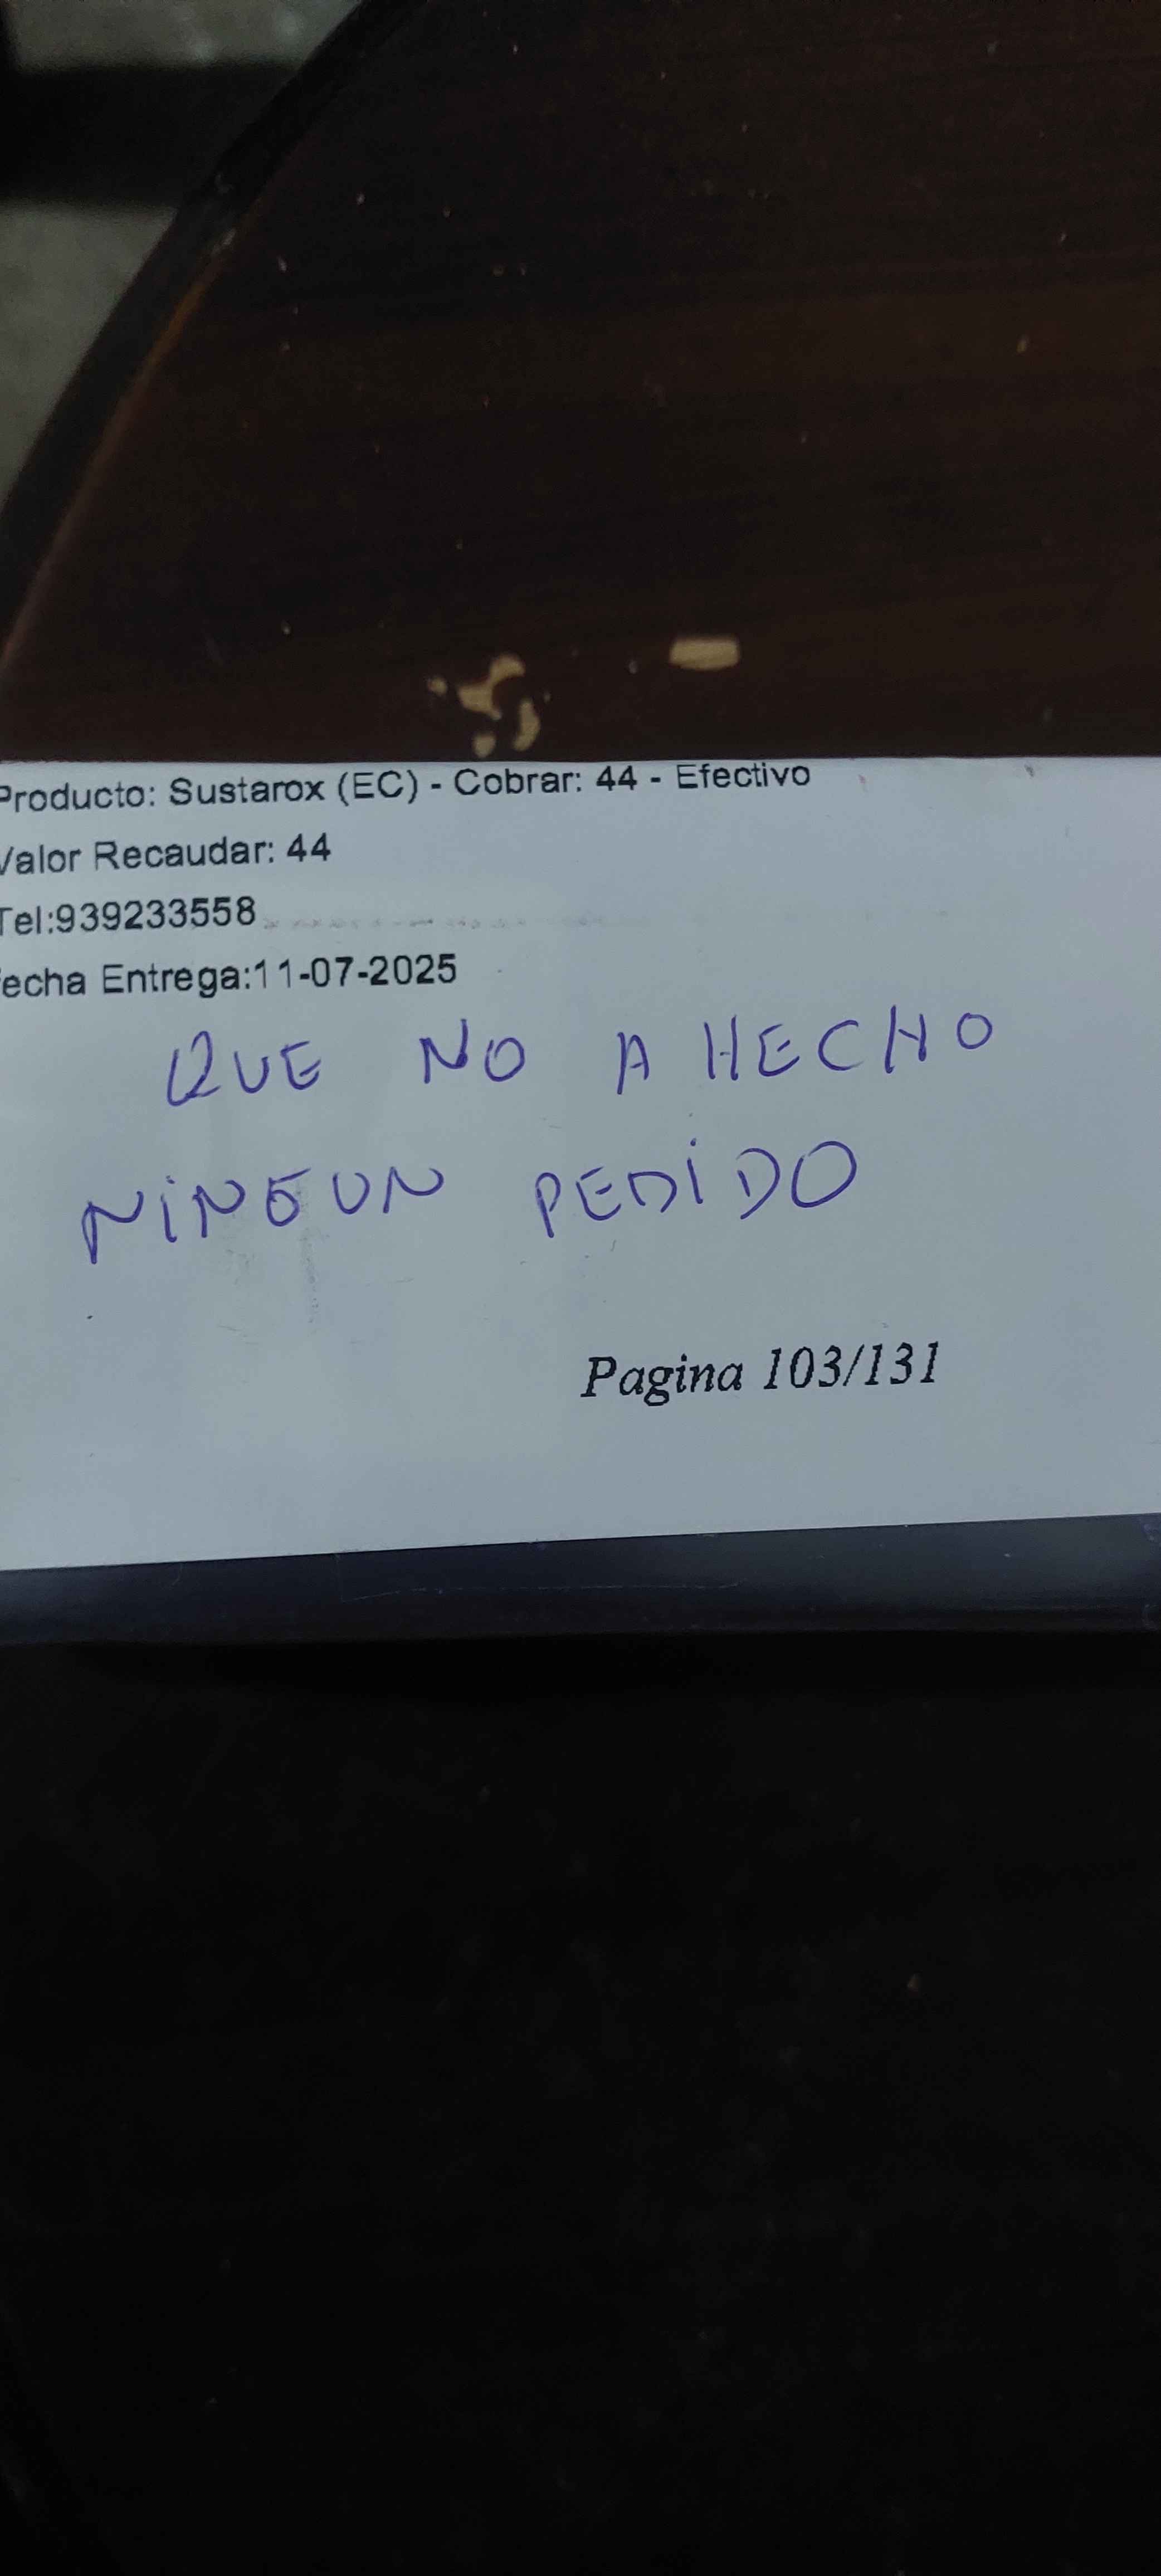 Producto: Sustarox (EC) - Cobrar: 44 - Efectivo
Valor Recaudar: 44
Tel:939233558
fecha Entrega:11-07-2025
QUE NO A HECHO
NINGUN PEDIDO
Pagina 103/131